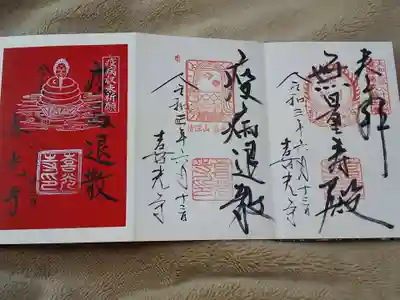 奉拝
無量寿殿
令和三年六月十三日
喜光寺
疫病退散
令和三年六月十三日
喜光寺
疫病収束祈願
疫病退散
喜光寺